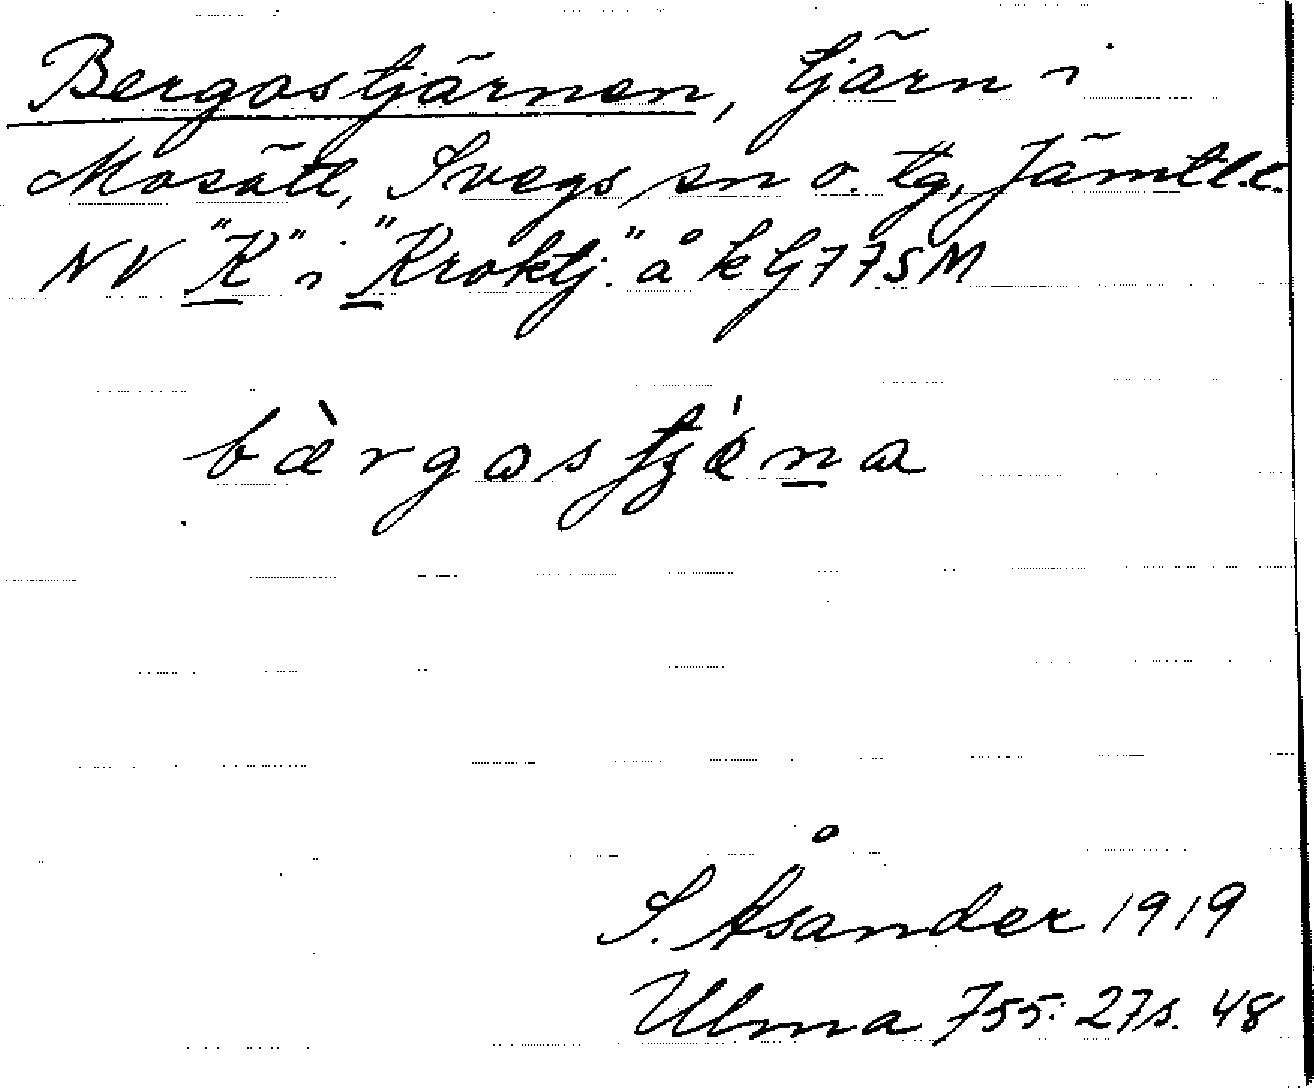 Bergostjärnen, tjärn i
Mosätt, Svegs sn o. tg, Jämtl.l.
NV "K" i "Kroktj." å k Gf 77SM
bàrgostjéna
S. Åsander 1919
Ulma 755: 27 s. 48